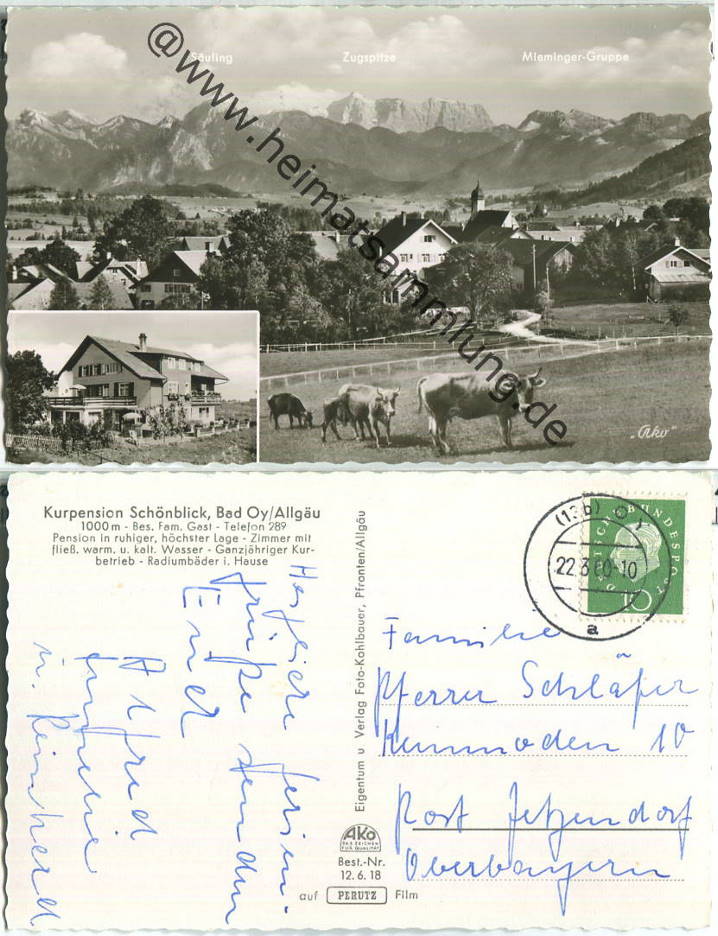 Säuling
Zugspitze
Mieminger-Gruppe
@www.heimatsammlung.de
"Ako"
Kurpension Schönblick, Bad Oy/Allgäu
1000 m - Bes. Fam. Gast - Telefon 289
Pension in ruhiger, höchster Lage - Zimmer mit
fließ. warm. u. kalt. Wasser - Ganzjähriger Kur-
betrieb - Radiumbäder i. Hause
Herzliche Ferien-
grüße senden
Euch
Alfred
u. Reinhard
Eigentum u Verlag Foto-Kohlbauer, Pfronten/Allgäu
AKO
DAS ZEICHEN
FÜR QUALITÄT
Best.-Nr.
12. 6. 18
auf PERUTZ Film
(13b) Oy
22.3.60-10
a
DEUTSCHE BUNDESPOST
10
Familie
Pfarrer Schläfer
Kemmoden 10
Post Jetzendorf
Oberbayern